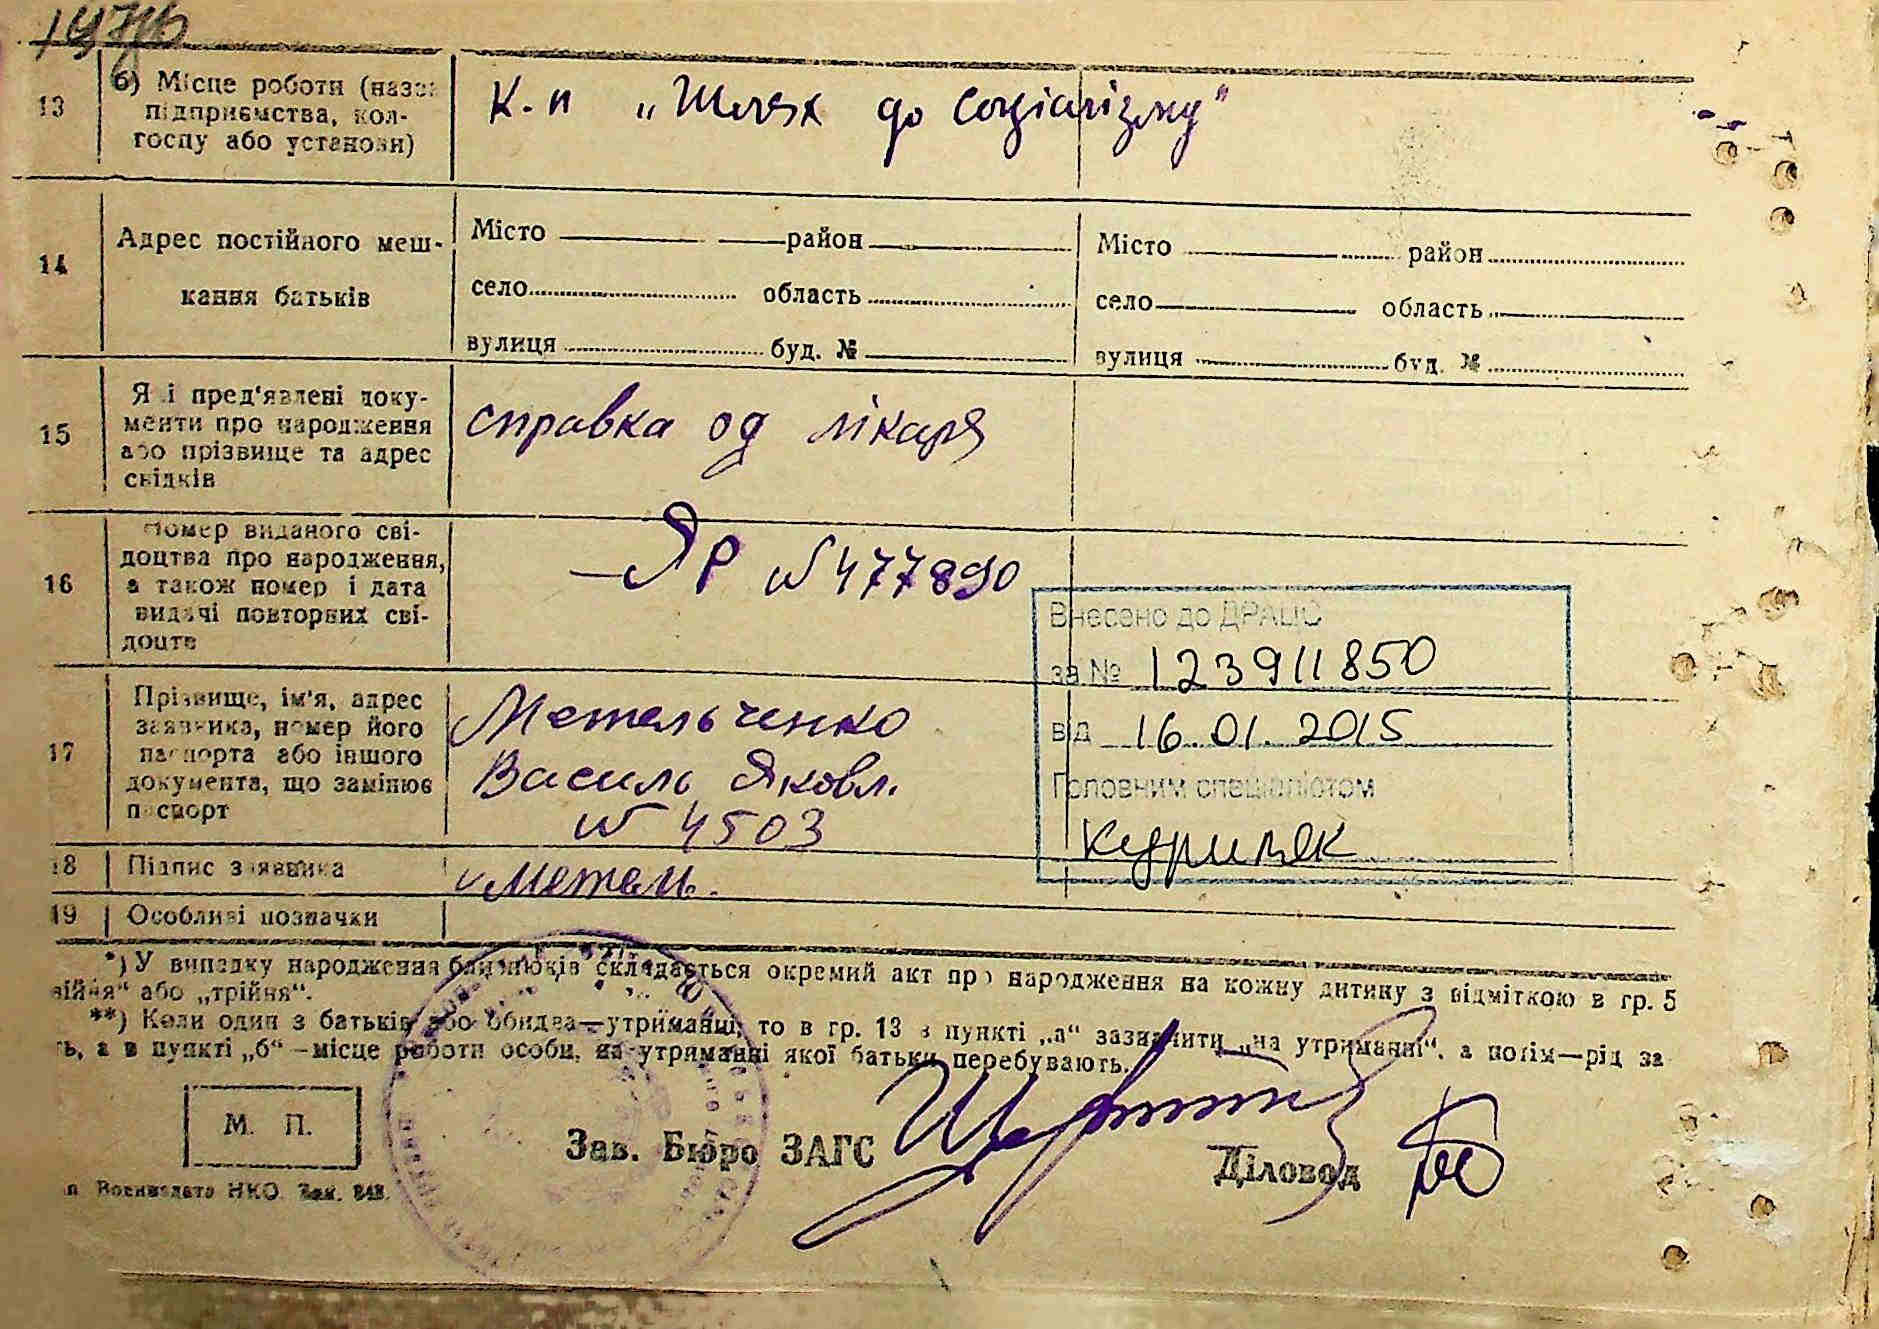 13
б) Місце роботи (назва
підприємства, кол-
госпу або установи)
К-п „Шлях до соціалізму"
14
Адрес постійного меш-
кання батьків
Місто район
село область
вулиця буд. №
Місто район
село область
вулиця буд. №
15
Які пред'явлені доку-
менти про народження
або прізвище та адрес
свідків
справка од лікаря
16
Номер виданого сві-
доцтва про народження,
а також номер і дата
видачі повторних сві-
доцтв
ЯР №477890
Внесено до ДРАЦС
за № 123911850
від 16.01.2015
Головним спеціалістом
17
Прізвище, ім'я, адрес
заявника, номер його
паспорта або іншого
документа, що замінює
паспорт
Метельченко
Василь Яковл.
№ 4503
18
Підпис заявника
Метель.
19
Особливі позначки
*) У випадку народження близнюків складається окремий акт про народження на кожну дитину з відміткою в гр. 5
війня" або „трійня".
**) Коли один з батьків або обидва—утриманці, то в гр. 13 в пункті „а" зазначити „на утриманні", а потім—рід за
ть, а в пункті „б"—місце роботи особи, на утриманні якої батьки перебувають.
М. П.
Зав. Бюро ЗАГС
Діловод
п Воениздата НКО. Зак. 848.